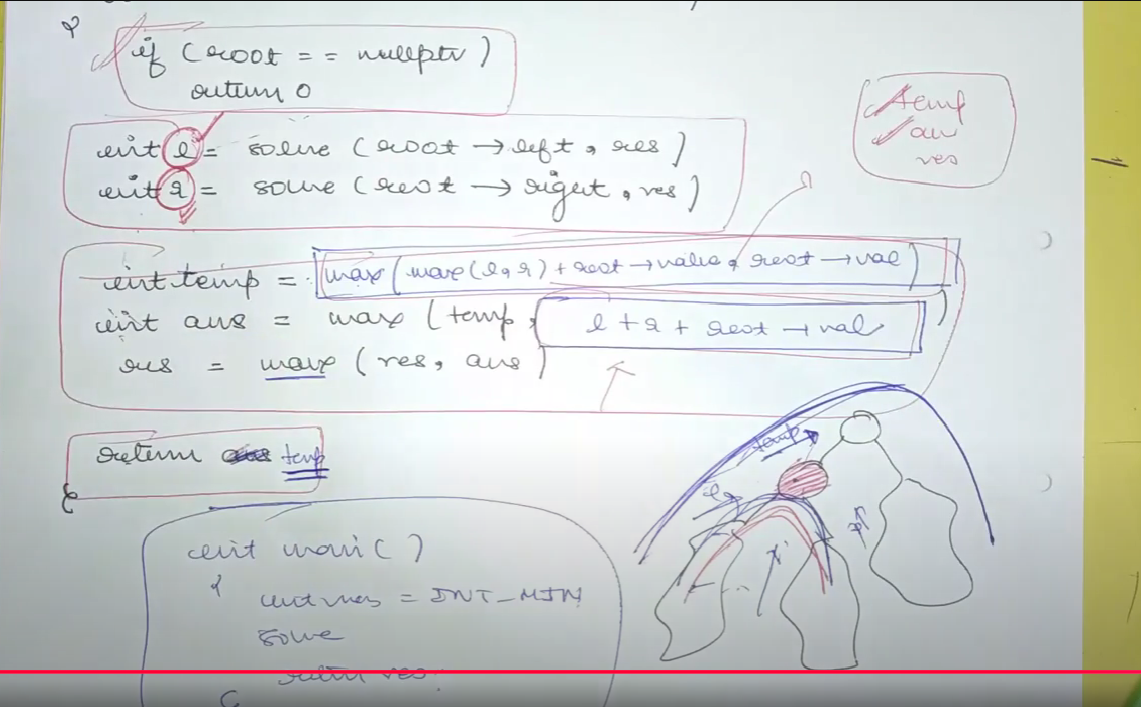 {
if (root == nullptr)
return 0
int l = solve (root → left, res)
int r = solve (root → right, res)
int temp = max(max(l, r) + root → value, root → val)
int ans = max (temp, l + r + root → val)
res = max (res, ans)
return temp
}
temp
ans
res
int main()
{
int res = INT_MIN
solve
return res
temp
l